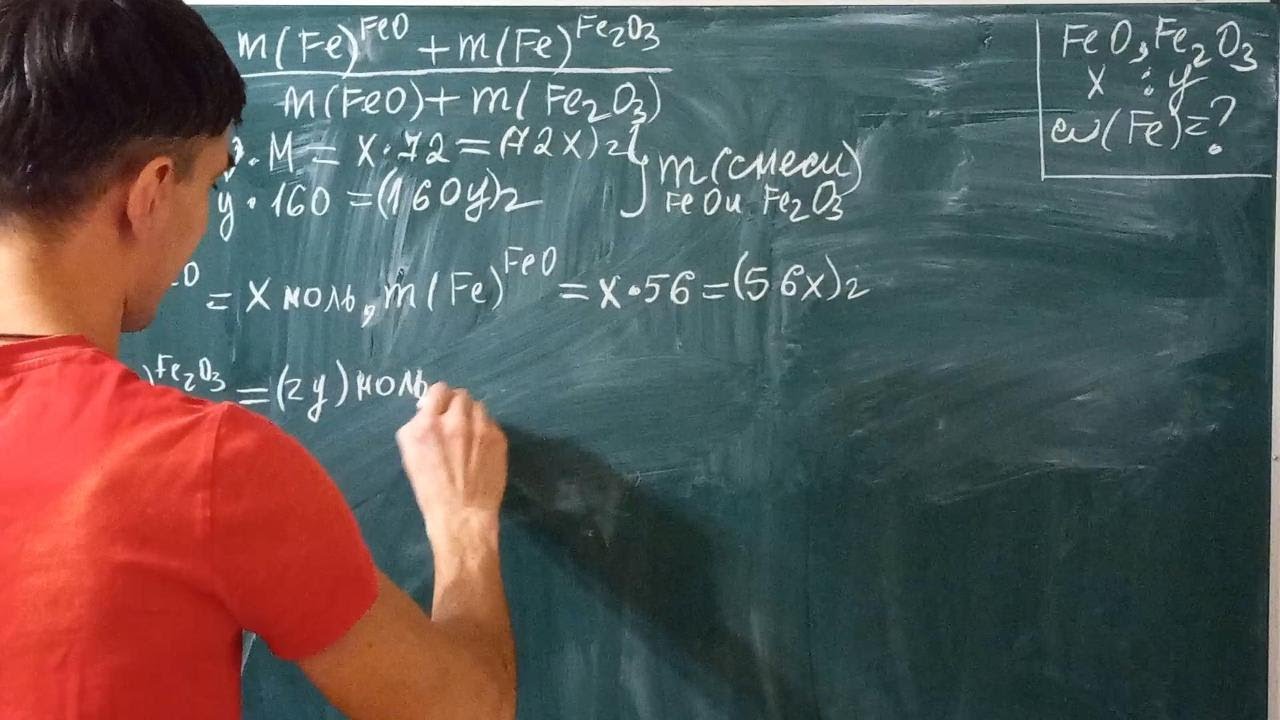 m(Fe)^FeO + m(Fe)^Fe₂O₃
m(FeO) + m(Fe₂O₃)
· M = x · 72 = (72x)г
y · 160 = (160y)г
} m(смеси)
FeO и Fe₂O₃
= x моль, m(Fe)^FeO = x · 56 = (56x)г
)^Fe₂O₃ = (2y) моль
FeO, Fe₂O₃
x : y
ω(Fe) = ?